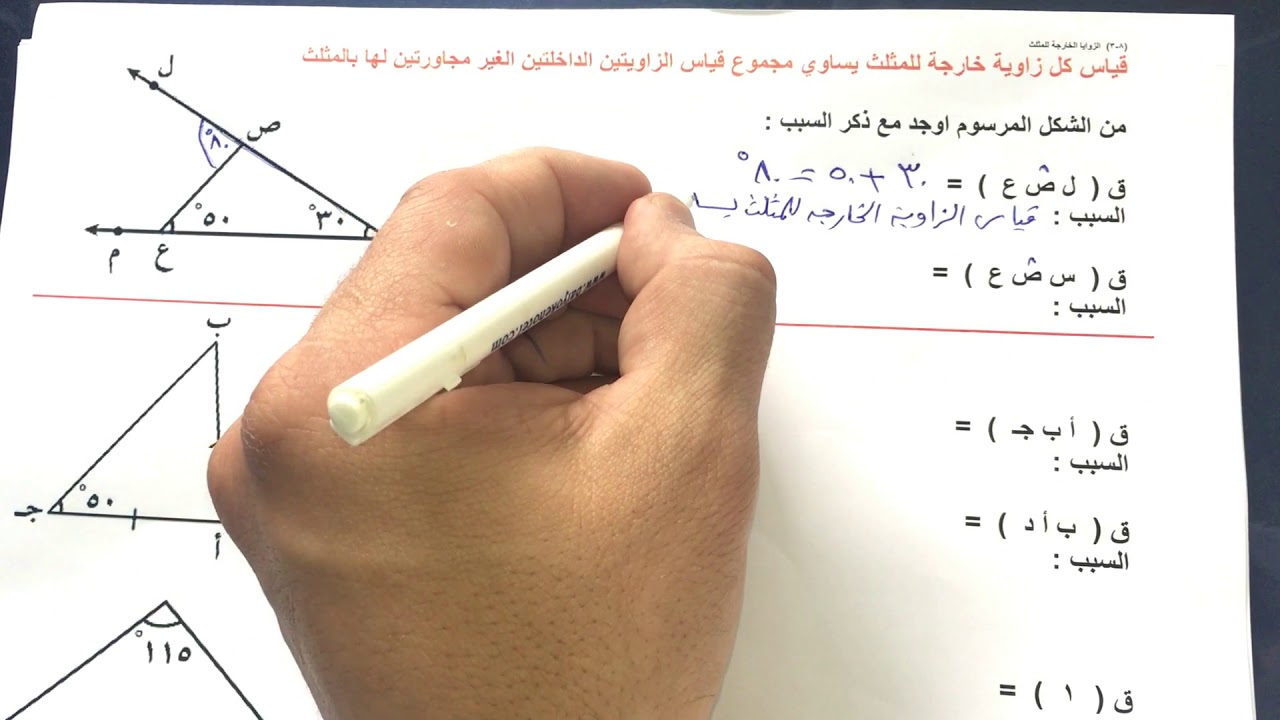 (٨-٣) الزوايا الخارجة للمثلث
قياس كل زاوية خارجة للمثلث يساوي مجموع قياس الزاويتين الداخلتين الغير مجاورتين لها بالمثلث
من الشكل المرسوم اوجد مع ذكر السبب :
ق ( ل ص ع ) = ٣٠ + ٥٠ = ٨٠°
السبب : قياس الزاوية الخارجه للمثلث يسا
ق ( س ص ع ) =
السبب :
ل
ص
٨٠°
٥٠°
٣٠°
م
ع
ق ( أ ب جـ ) =
السبب :
ق ( ب أ د ) =
السبب :
ب
جـ
٥٠°
أ
١١٥°
ق ( ١ ) =